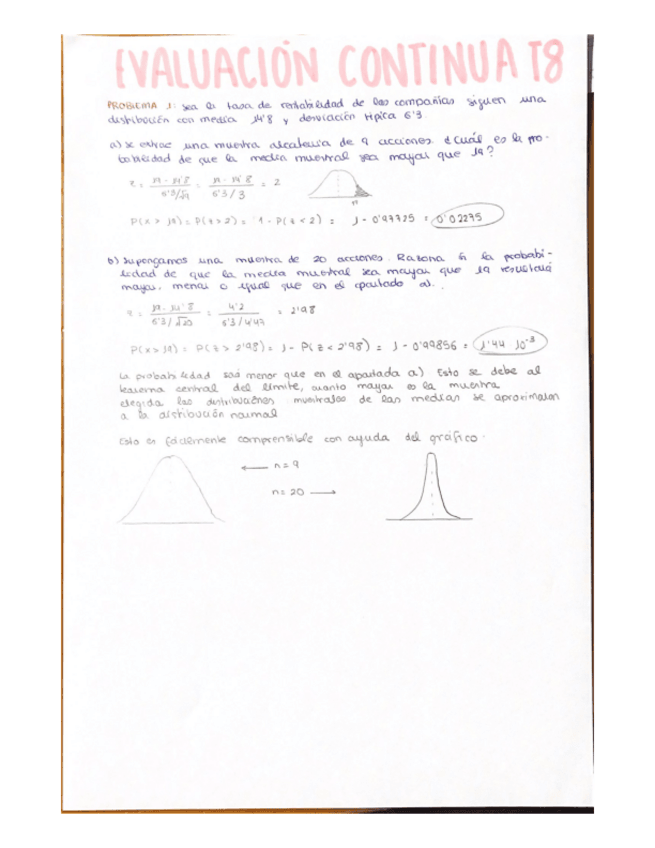 EVALUACIÓN CONTINUA T8
PROBLEMA 1: Sea la tasa de rentabilidad de las compañías siguen una
distribución con media 14'8 y desviación típica 6'3.
a) Se extrae una muestra aleatoria de 9 acciones. ¿Cuál es la pro-
babilidad de que la media muestral sea mayor que 19?
z = 19 - 14'8 / 6'3/√9 = 19 - 14'8 / 6'3/3 = 2
19
P(x > 19) = P(z > 2) = 1 - P(z < 2) = 1 - 0'97725 = 0'02275
b) Supongamos una muestra de 20 acciones. Razona si la probabi-
lidad de que la media muestral sea mayor que 19 resultará
mayor, menor o igual que en el apartado a).
z = 19 - 14'8 / 6'3/√20 = 4'2 / 6'3/4'47 = 2'98
P(x > 19) = P(z > 2'98) = 1 - P(z < 2'98) = 1 - 0'99856 = 1'44 · 10⁻³
La probabilidad será menor que en el apartado a) Esto se debe al
teorema central del límite, cuanto mayor es la muestra
elegida las distribuciones muestrales de las medias se aproximan
a la distribución normal
Esto es fácilmente comprensible con ayuda del gráfico.
← n = 9
n = 20 →